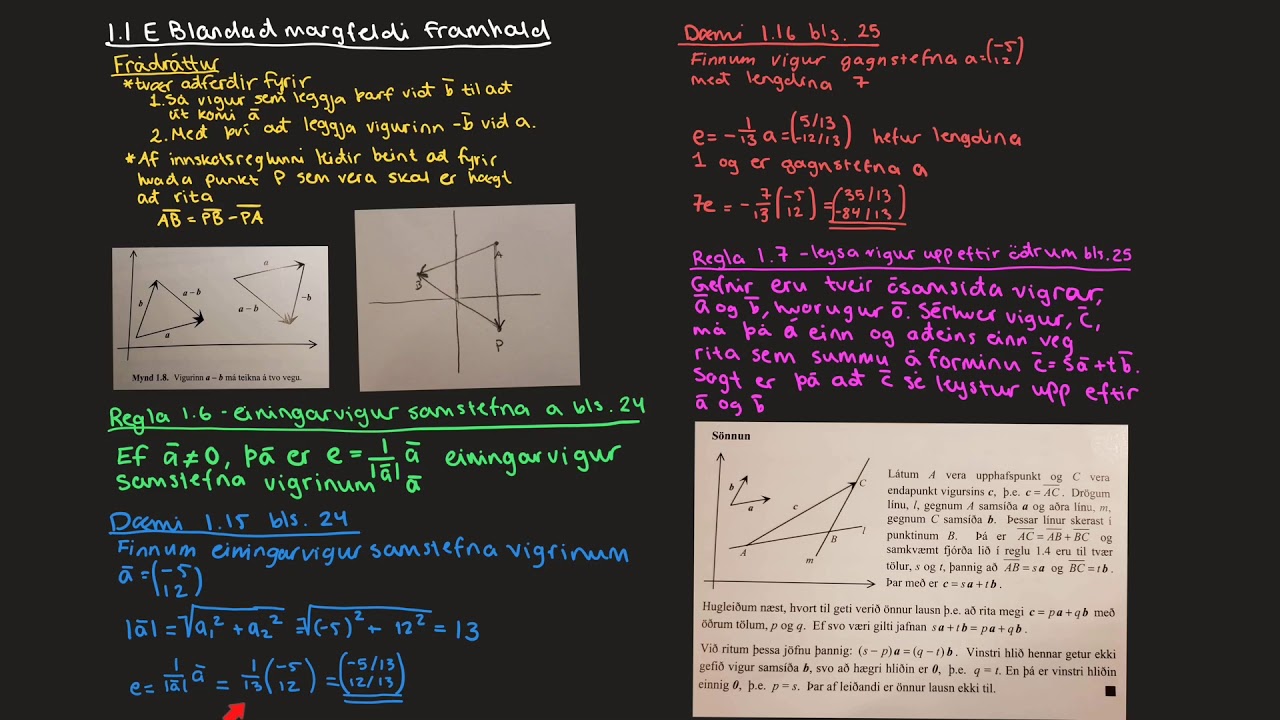 1.1 E Blandað margfeldi framhald
Frádráttur
*tvær aðferðir fyrir
1. Sá vigur sem leggja þarf við b̄ til að
út komi ā
2. Með því að leggja vigurinn -b̄ við a.
*Af innskotsreglunni leiðir beint að fyrir
hvaða punkt P sem vera skal er hægt
að rita
A̅B̅ = P̅B̅ - P̅A̅
b
a-b
a
a
a-b
-b
Mynd 1.8. Vigurinn a – b má teikna á tvo vegu.
A
B
P
Regla 1.6 - einingarvigur samstefna a bls. 24
Ef ā ≠ 0, þá er e = 1/|ā| ā einingarvigur
samstefna vigrinum ā
Dæmi 1.15 bls. 24
Finnum einingarvigur samstefna vigrinum
ā = (-5 12)
|ā| = √a₁² + a₂² = √(-5)² + 12² = 13
e = 1/|ā| ā = 1/13 (-5 12) = (-5/13 12/13)
Dæmi 1.16 bls. 25
Finnum vigur gagnstefna a = (-5 12)
með lengdina 7
e = -1/13 a = (5/13 -12/13) hefur lengdina
1 og er gagnstefna a
7e = -7/13 (-5 12) = (35/13 -84/13)
Regla 1.7 - leysa vigur upp eftir öðrum bls. 25
Gefnir eru tveir ósamsíða vigrar,
ā og b̄, hvorugur ō. Sérhver vigur, c̄,
má þá á einn og aðeins einn veg
rita sem summu á forminu c̄ = sā + tb̄.
Sagt er þá að c̄ sé leystur upp eftir
ā og b̄
Sönnun
b
a
c
C
A
B
l
m
Látum A vera upphafspunkt og C vera
endapunkt vigursins c, þ.e. c = A̅C̅. Drögum
línu, l, gegnum A samsíða a og aðra línu, m,
gegnum C samsíða b. Þessar línur skerast í
punktinum B. Þá er A̅C̅ = A̅B̅ + B̅C̅ og
samkvæmt fjórða lið í reglu 1.4 eru til tvær
tölur, s og t, þannig að A̅B̅ = sa og B̅C̅ = tb.
Þar með er c = sa + tb.
Hugleiðum næst, hvort til geti verið önnur lausn þ.e. að rita megi c = pa + qb með
öðrum tölum, p og q. Ef svo væri gilti jafnan sa + tb = pa + qb.
Við ritum þessa jöfnu þannig: (s – p)a = (q – t)b. Vinstri hlið hennar getur ekki
gefið vigur samsíða b, svo að hægri hliðin er 0, þ.e. q = t. En þá er vinstri hliðin
einnig 0, þ.e. p = s. Þar af leiðandi er önnur lausn ekki til.